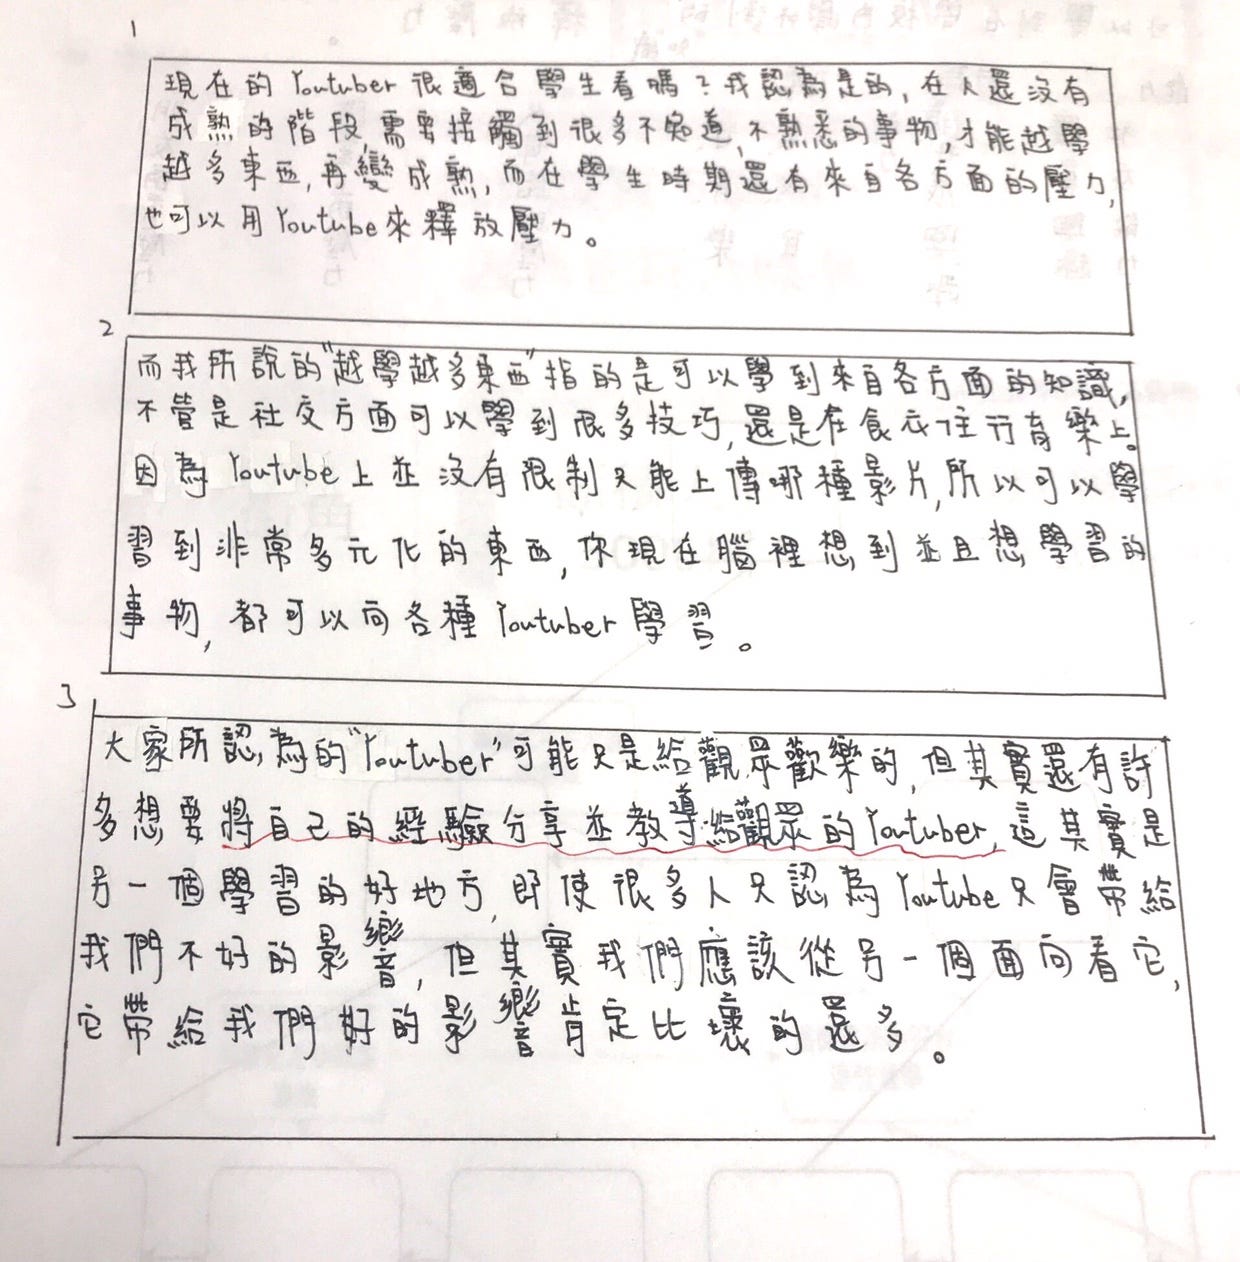 1
現在的 Youtuber 很適合學生看嗎？我認為是的，在人還沒有
成熟的階段，需要接觸到很多不知道，不熟悉的事物，才能越學
越多東西，再變成熟，而在學生時期還有來自各方面的壓力，
也可以用Youtube來釋放壓力。
2
而我所說的"越學越多東西"指的是可以學到來自各方面的知識，
不管是社交方面可以學到很多技巧，還是在食衣住行育樂上。
因為 Youtube 上並沒有限制只能上傳哪種影片，所以可以學
習到非常多元化的東西，你現在腦裡想到並且想學習的
事物，都可以向各種 Youtuber 學習。
3
大家所認為的"Youtuber"可能只是給觀眾歡樂的，但其實還有許
多想要將自己的經驗分享並教導給觀眾的Youtuber，這其實是
另一個學習的好地方，即使很多人只認為Youtube只會帶給
我們不好的影響，但其實我們應該從另一個面向看它，
它帶給我們好的影響肯定比壞的還多。